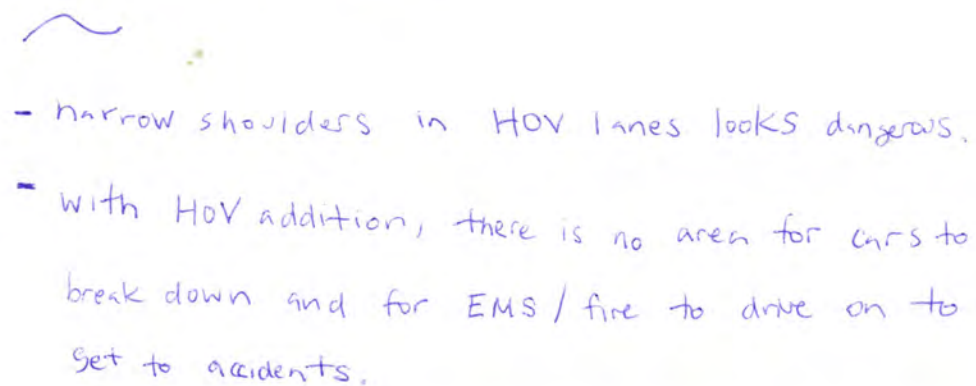 - narrow shoulders in HOV lanes looks dangerous.
- with HOV addition, there is no area for cars to
break down and for EMS / fire to drive on to
get to accidents.